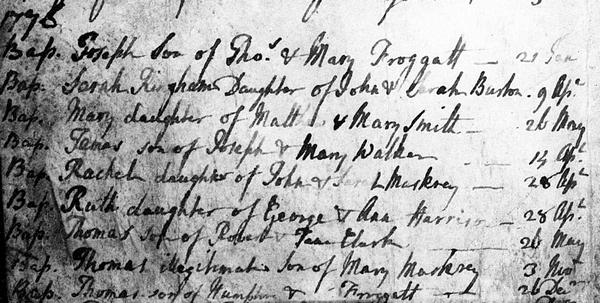 1778
Bap. Joseph Son of Thos. & Mary Froggatt — 21 Jan
Bap. Sarah Kingham Daughter of John & Sarah Burton. 9 Apl.
Bap. Mary daughter of Matthew & Mary Smith — 26 May
Bap. James son of Joseph & Mary Walker — 14 Apl.
Bap. Rachel daughter of John & Maskrey — 28 Apl.
Bap. Ruth daughter of George & Ann Harrison — 28 Apl.
Bap. Thomas son of Robert & Jane Clark — 26 May
Bap. Thomas illegitimate son of Mary Maskrey 3 Novr
Bap. Thomas son of & Froggatt — 26 Decr